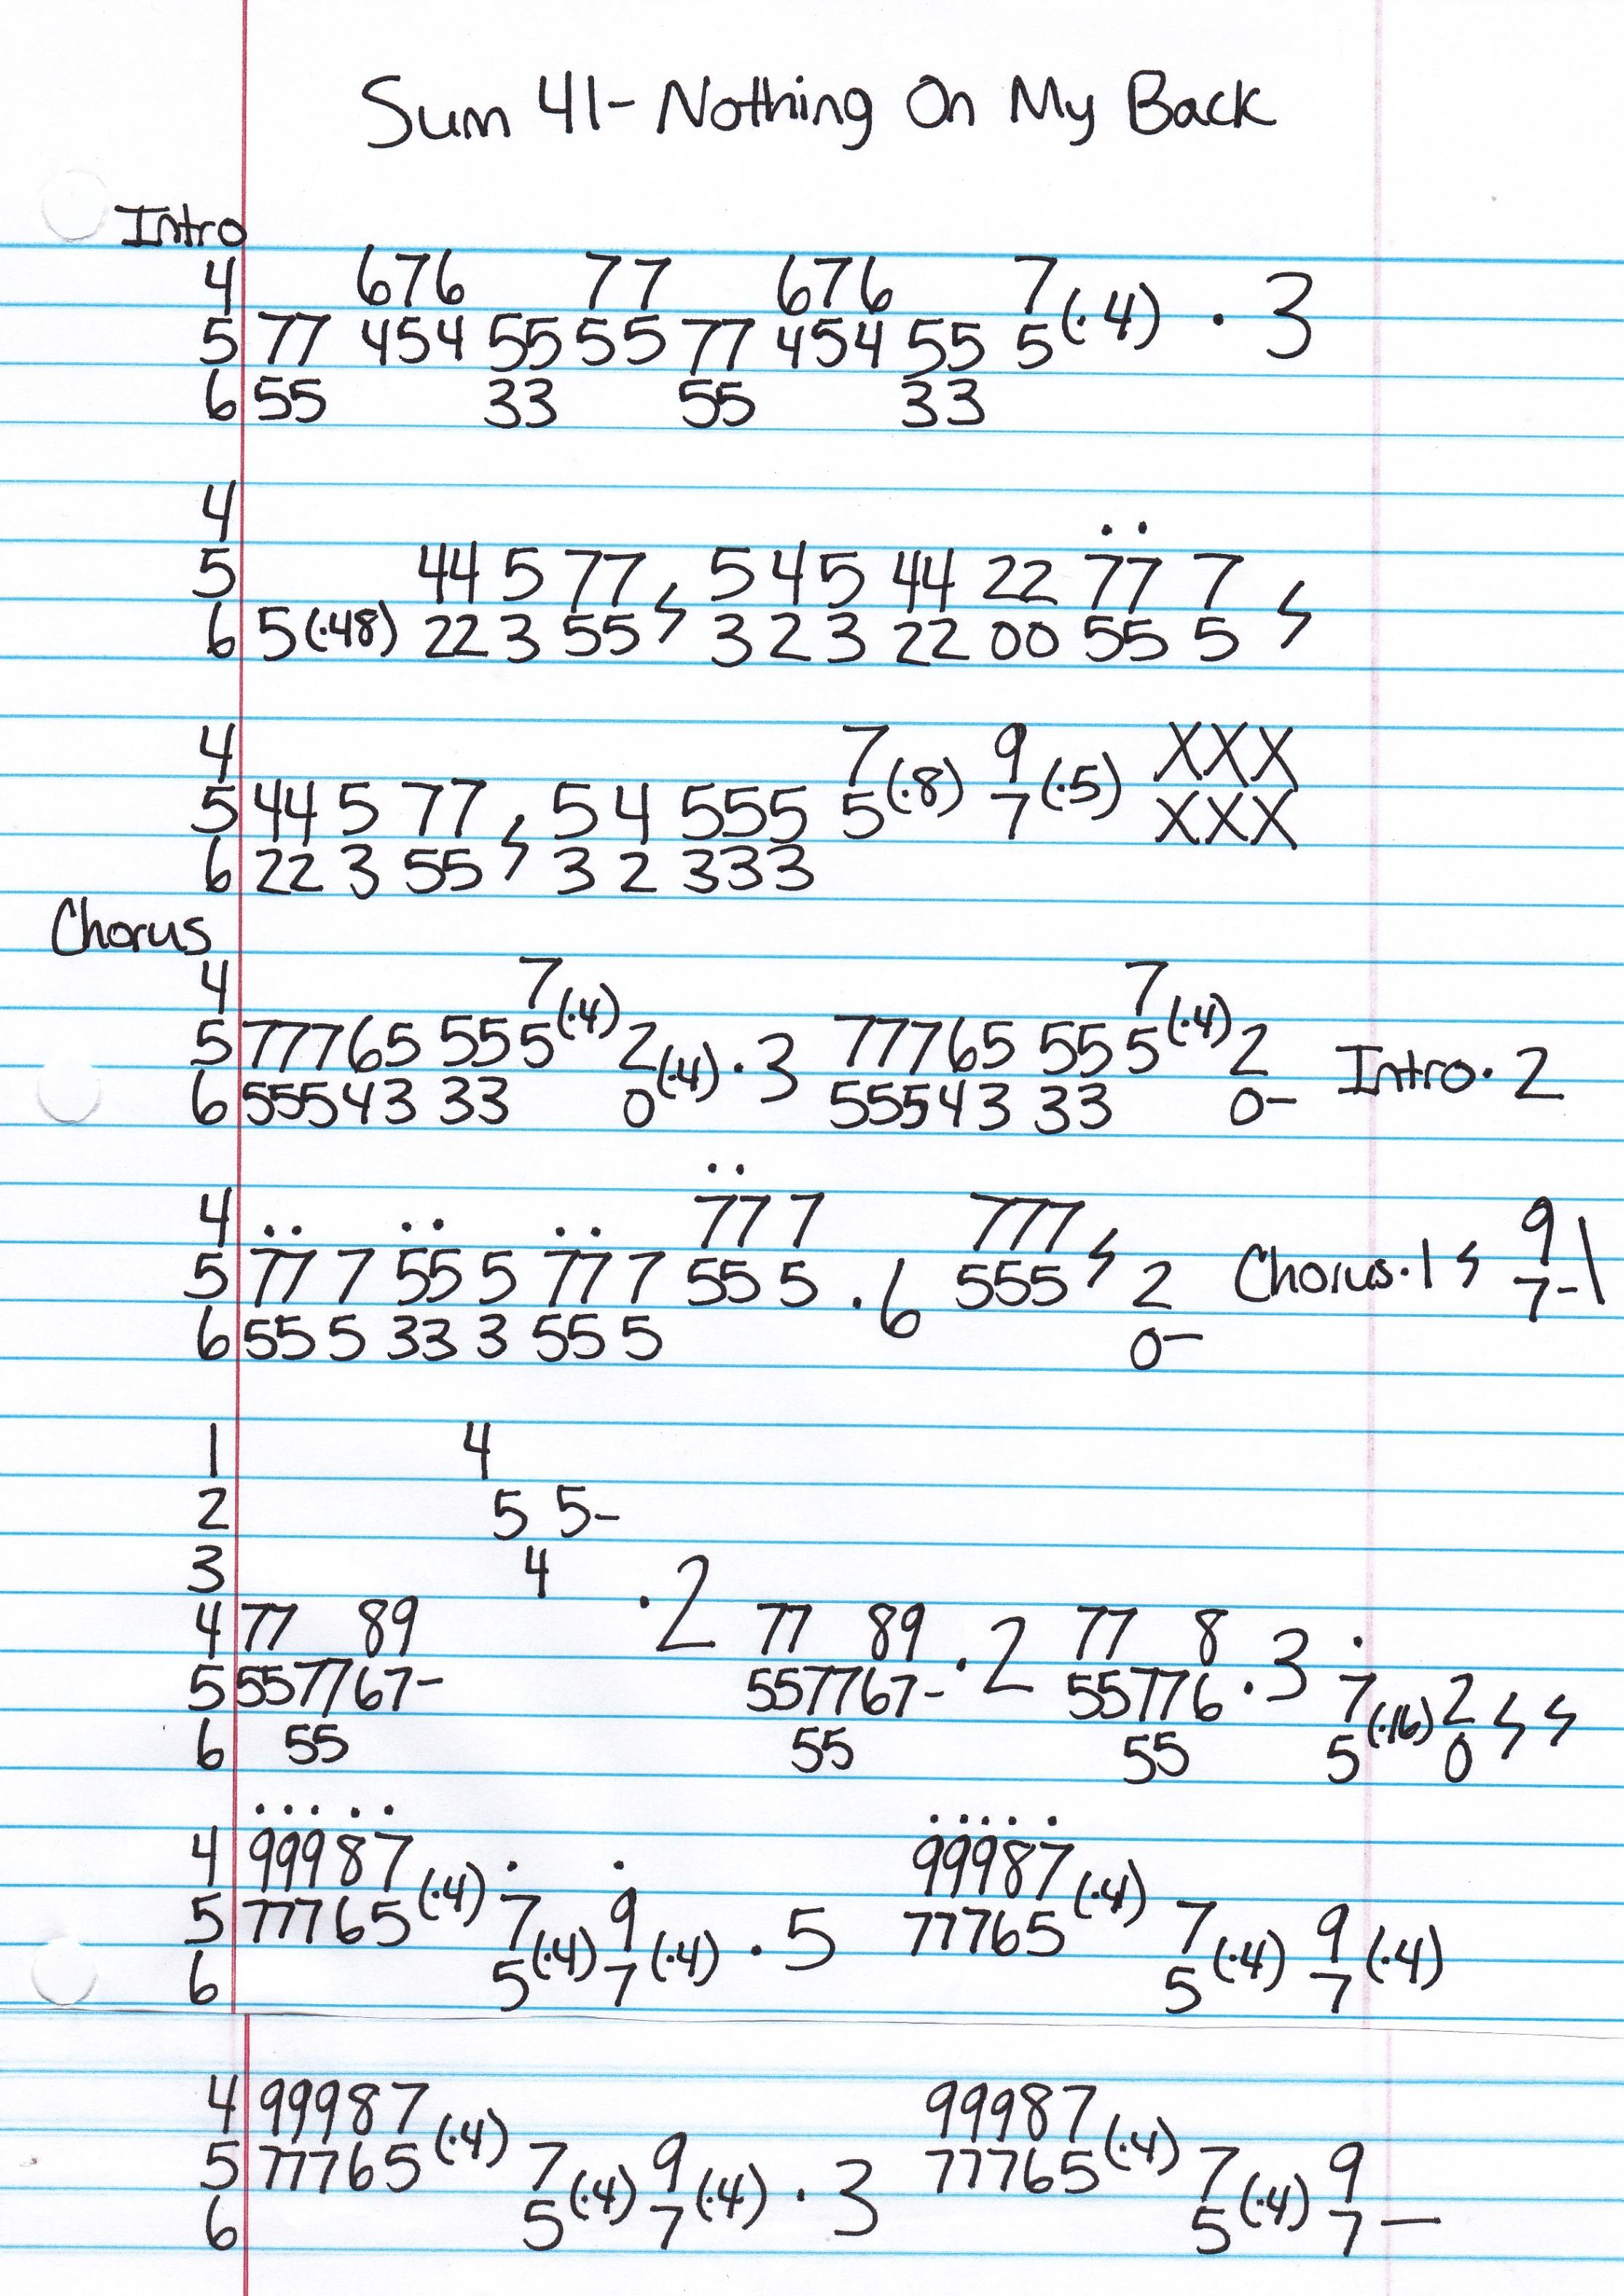 Sum 41- Nothing On My Back
Intro
4 676 77 676 7
5 77 454 55 55 77 454 55 5 (·4) · 3
6 55 33 55 33
4 ··
5 44 5 77 5 4 5 44 22 77 7
6 5(·48) 22 3 55 3 2 3 22 00 55 5
4 7 9 XXX
5 44 5 77 5 4 555 5 (·8) 7 (·5) XXX
6 22 3 55 3 2 333
Chorus
4 7 7
5 77765 55 5 (·4) 2 77765 55 5 (·4) 2
6 55543 33 0 (·4) · 3 55543 33 0- Intro · 2
··
4 ·· ·· ·· 77 7 777 9
5 77 7 55 5 77 7 55 5 · 6 555 2 Chorus · 1 7-
6 55 5 33 3 55 5 0-
1 4
2 5 5-
3 4 · 2
4 77 89 77 89 77 8 ·
5 557767- 557767- · 2 55776 · 3 7 2
6 55 55 55 5 (·16) 0
····· ·····
4 99987 · · 99987
5 77765 (·4) 7 9 · 5 77765 (·4) 7 9
6 5 (·4) 7 (·4) 5 (·4) 7 (·4)
4 99987 99987
5 77765 (·4) 7 9 · 3 77765 (·4) 7 9
6 5 (·4) 7 (·4) 5 (·4) 7 —